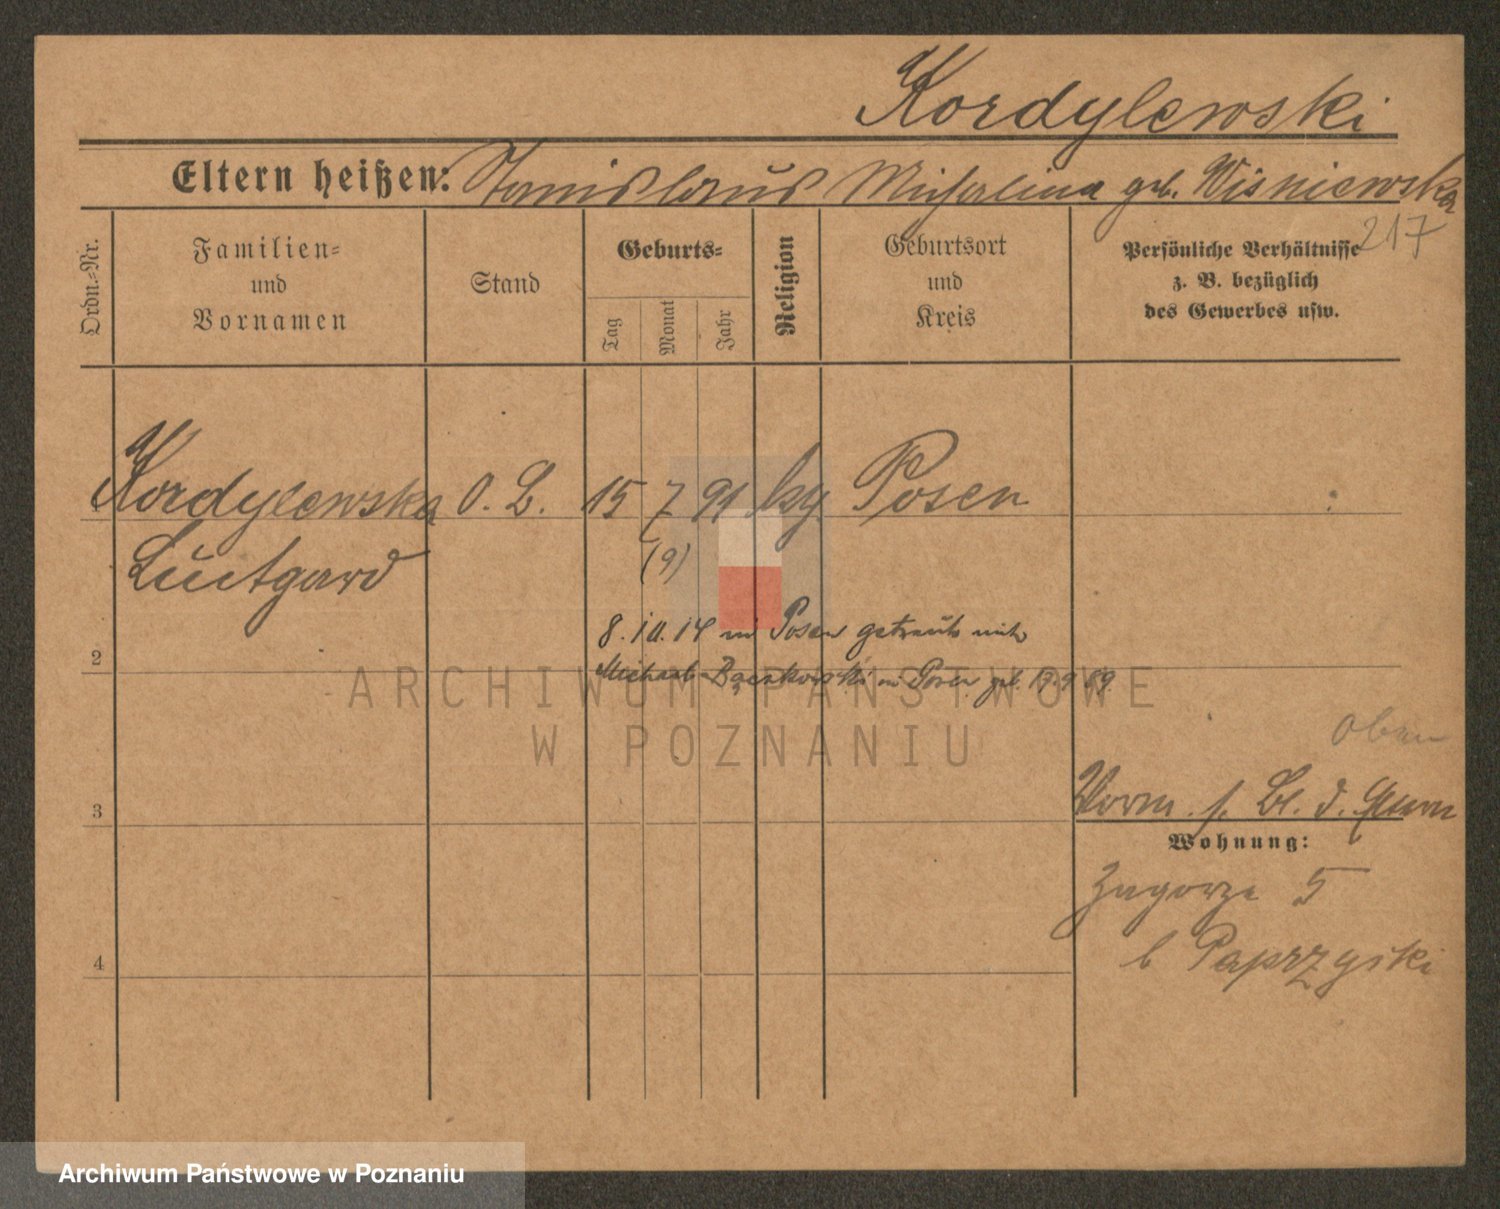 Kordylewski
Eltern heißen: Stanislaus Michalina geb. Wisniewska
217
Ordn.-Nr.
Familien- und Vornamen
Stand
Geburts-
Tag
Monat
Jahr
Religion
Geburtsort und Kreis
Persönliche Verhältnisse
z. B. bezüglich
des Gewerbes usw.
Kordylewska O. L. 15 7 91 ky Posen
Luitgard
(9)
8. 10. 14 in Posen getraut mit
2
Michael Bączkowski in Posen geb. 17.9 89.
ARCHIWUM PAŃSTWOWE
W POZNANIU
oben
3
Vorm. f. Bl. d.
Wohnung:
Zagorze 5
b Paprzycki
4
Archiwum Państwowe w Poznaniu